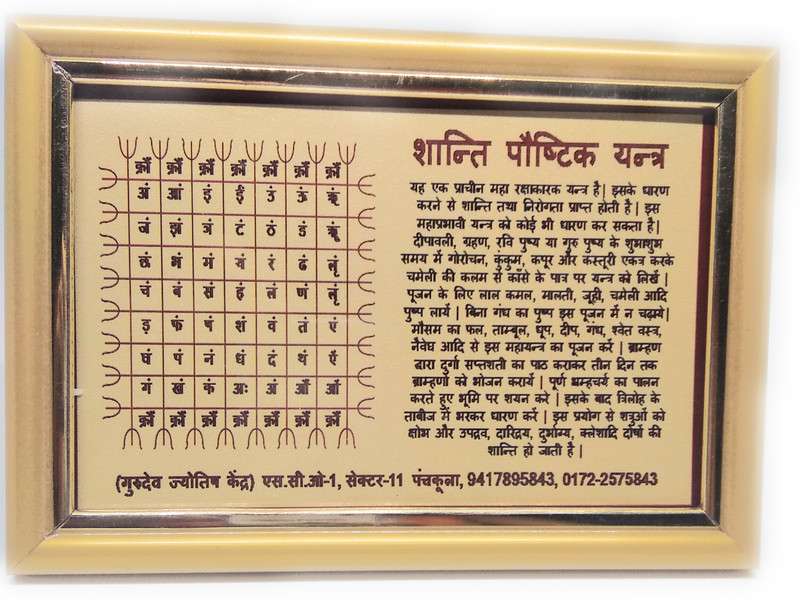 शान्ति पौष्टिक यन्त्र
क्रौं क्रौं क्रौं क्रौं क्रौं क्रौं क्रौं
अं आं इं ईं उं ऊं ऋं
जं झं ञं टं ठं डं ॠं
छं भं मं यं रं ढं लृं
चं बं सं हं लं णं लॄं
ङं फं षं शं वं तं एं
घं पं नं धं दं थं ऐं
गं खं कं अः अं औं ओं
क्रौं क्रौं क्रौं क्रौं क्रौं क्रौं क्रौं
यह एक प्राचीन महा रक्षाकारक यन्त्र है| इसके धारण
करने से शान्ति तथा निरोगता प्राप्त होती है| इस
महाप्रभावी यन्त्र को कोई भी धारण कर सकता है|
दीपावली, ग्रहण, रवि पुष्य या गुरु पुष्य के शुभाशुभ
समय में गोरोचन, कुंकुम, कपूर और कस्तूरी एकत्र करके
चमेली की कलम से काँसे के पात्र पर यन्त्र को लिखें |
पूजन के लिए लाल कमल, मालती, जूही, चमेली आदि
पुष्प लायें | बिना गंध का पुष्प इस पूजन में न चढ़ाये|
मौसम का फल, ताम्बूल, धूप, दीप, गंध, श्वेत वस्त्र,
नैवेघ आदि से इस महायन्त्र का पूजन करें | ब्राम्हण
द्वारा दुर्गा सप्तशती का पाठ कराकर तीन दिन तक
ब्राम्हणों को भोजन करायें | पूर्ण ब्रम्हचर्य का पालन
करते हुए भूमि पर शयन करे | इसके बाद त्रिलोह के
ताबीज में भरकर धारण करें | इस प्रयोग से शत्रुओं को
क्षोभ और उपद्रव, दारिद्रय, दुर्भाग्य, क्लेशादि दोषों की
शान्ति हो जाती है |
(गुरुदेव ज्योतिष केंद्र) एस.सी.ओ-1, सेक्टर-11 पंचकूला, 9417895843, 0172-2575843